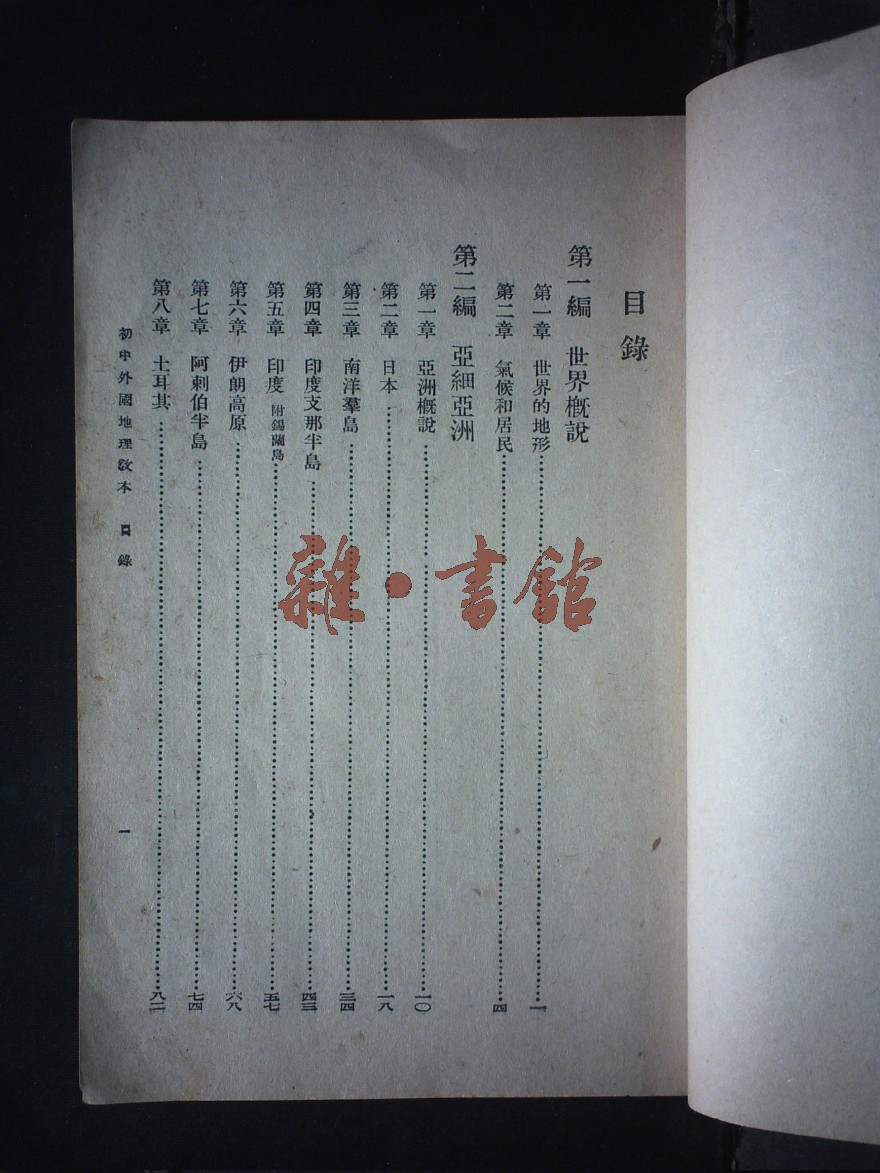 目錄
第一編 世界概說
第一章 世界的地形……一
第二章 氣候和居民……四
第二編 亞細亞洲
第一章 亞洲概說……一〇
第二章 日本……一八
第三章 南洋羣島……三四
第四章 印度支那半島……四三
第五章 印度 附錫蘭島……五七
第六章 伊朗高原……六八
第七章 阿剌伯半島……七四
第八章 土耳其……八二
初中外國地理教本 目錄 一
雜·書館